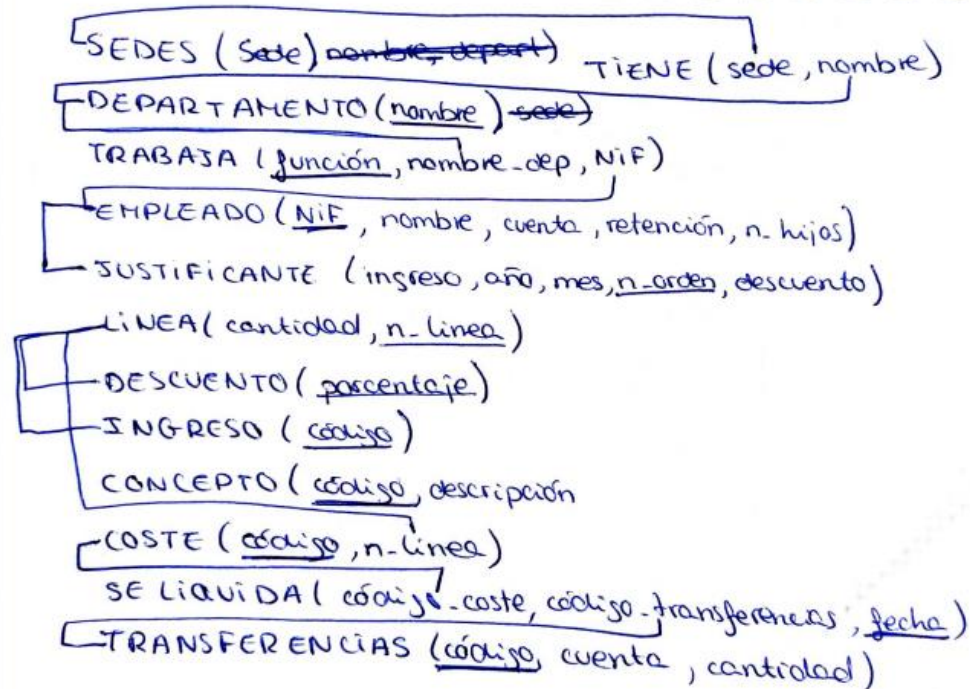 SEDES (Sede) nombre, depart)
TIENE (sede, nombre)
DEPARTAMENTO (nombre) sede)
TRABAJA (función, nombre_dep, NiF)
EMPLEADO (NiF, nombre, cuenta, retención, n_hijos)
JUSTIFICANTE (ingreso, año, mes, n_orden, descuento)
LINEA (cantidad, n_linea)
DESCUENTO (porcentaje)
INGRESO (código)
CONCEPTO (código, descripción
COSTE (código, n-linea)
SE LIQUIDA ( código-coste, código-transferencias, fecha)
TRANSFERENCIAS (código, cuenta, cantidad)